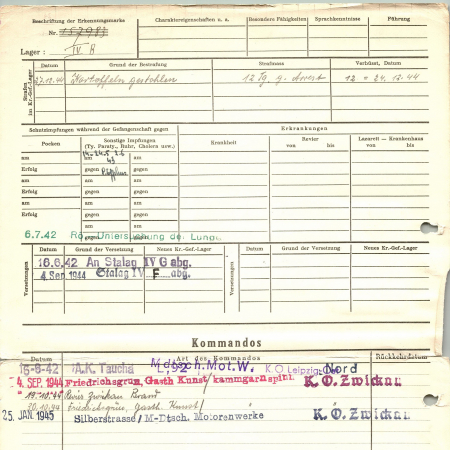 Beschriftung der Erkennungsmarke
Nr. 157983
Lager: IV B
Charaktereigenschaften u. a.
Besondere Fähigkeiten
Sprachkenntnisse
Führung
Strafen im Kr.-Gef.-Lager
Datum
Grund der Bestrafung
Strafmass
Verbüsst, Datum
27.12.44 Kartoffeln gestohlen 12 Tg. g. Arrest 12 - 24.12.44
Schutzimpfungen während der Gefangenschaft gegen
Erkrankungen
Pocken
Sonstige Impfungen
(Ty. Paraty., Ruhr, Cholera usw.)
Krankheit
Revier
von bis
Lazarett — Krankenhaus
von bis
am
am
am
Erfolg
gegen
gegen
am
am
am
Erfolg
gegen
gegen
am
am
am
Erfolg
gegen
gegen
am
am
am
Erfolg
gegen
gegen
6.7.42 Rö. Untersuchung der Lunge
Versetzungen
Datum
Grund der Versetzung
Neues Kr.-Gef.-Lager
Versetzungen
Datum
Grund der Versetzung
Neues Kr.-Gef.-Lager
16.6.42 An Stalag IV G abg.
4. Sep. 1944 Stalag IV F abg.
Kommandos
Datum
Art des Kommandos
Rückkehrdatum
15-6-42 A.K. Taucha Mdtsch. Mot. W. K.O. Leipzig Nord
-4. SEP. 1944 Friedrichsgrün, Gasth Kunst/kammgarnspinl. K.O. Zwickau
19.10.44 Revier Zwickau
20.10.44 Friedrichsgrün, Gasth. Kunst/
25. JAN. 1945 Silberstrasse/M-Dtsch. Motorenwerke K.O. Zwickau